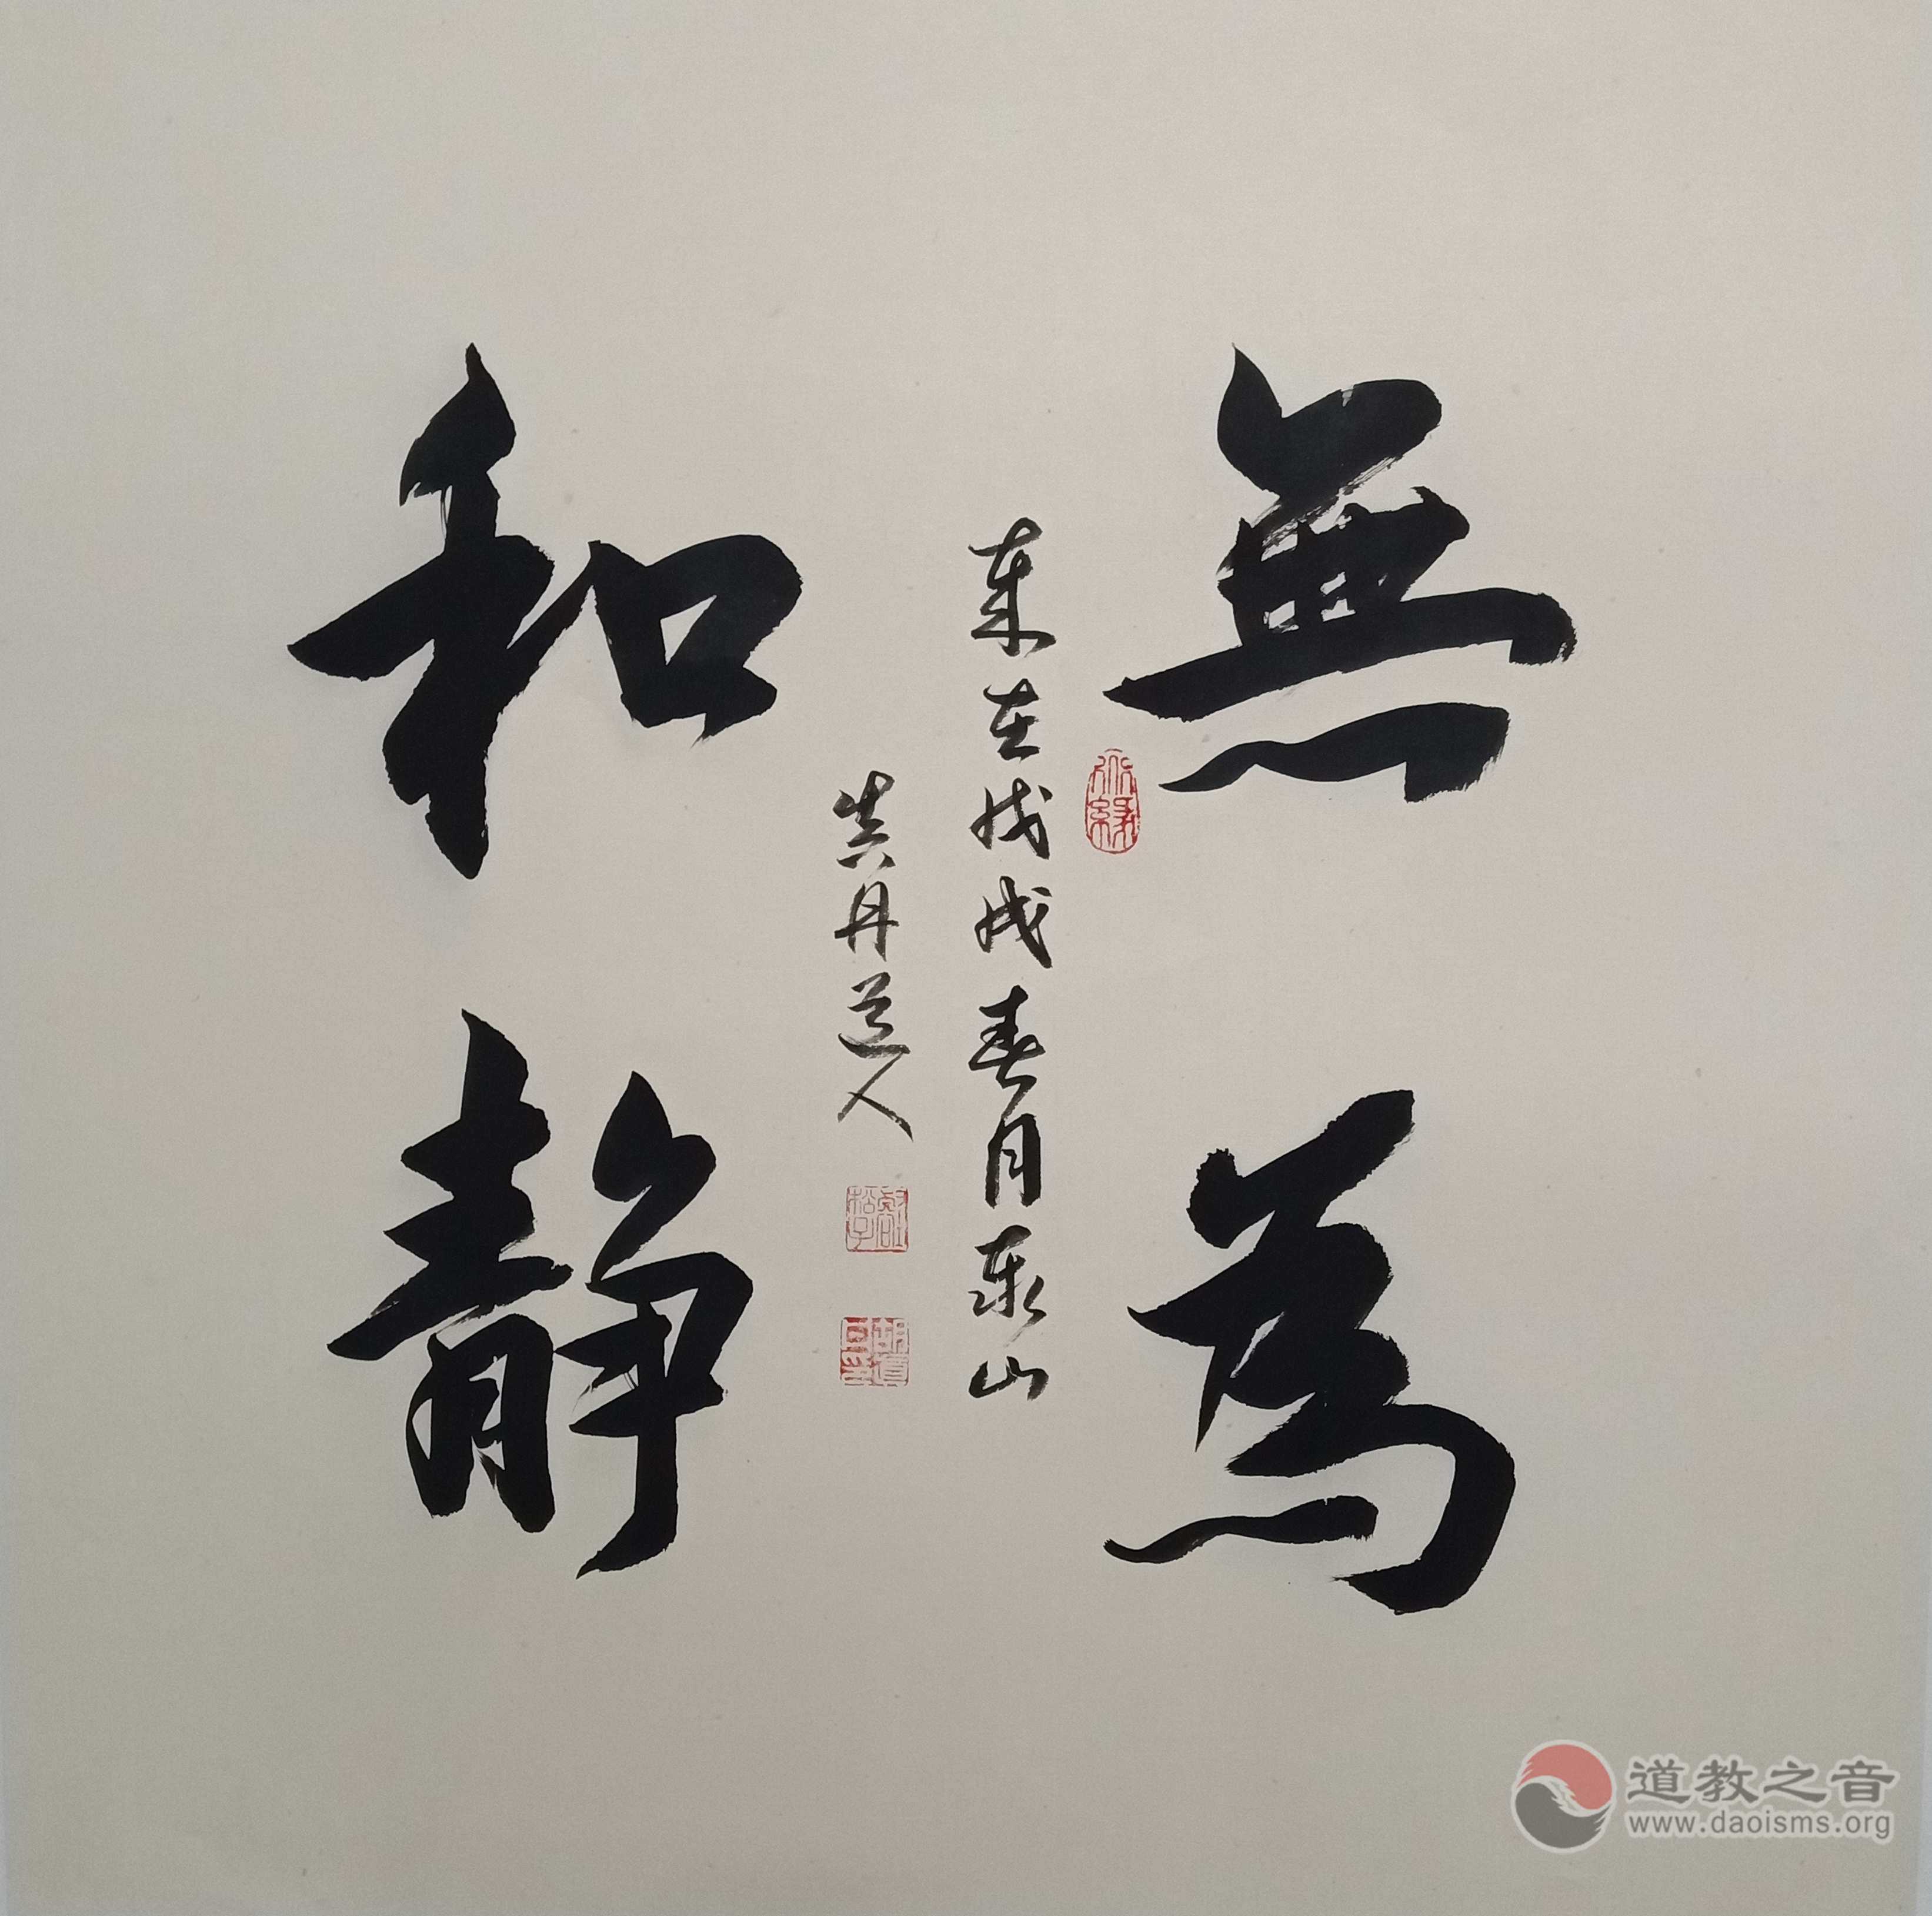 無為
和静
在戊戌春月泰山
真丹道人
道教之音
www.daoisms.org